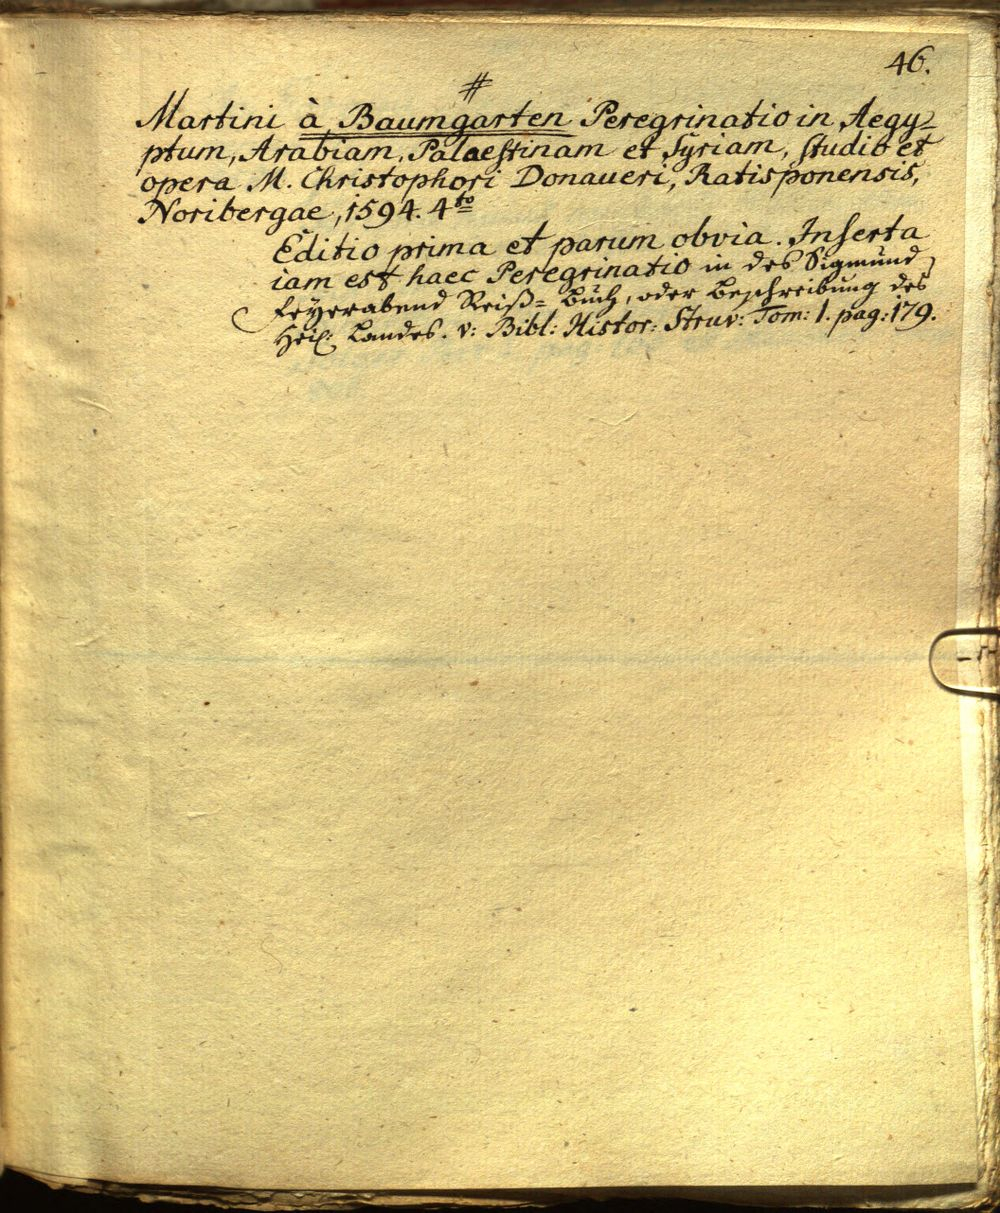 46.
#
Martini à Baumgarten Peregrinatio in Aegy=
ptum, Arabiam, Palaestinam et Syriam, studio et
opera M. Christophori Donaueri, Ratisponensis,
Noribergae, 1594. 4to
Editio prima et parum obvia. Inserta
iam est haec Peregrinatio in des Sigmund
Feyerabend Reiß= Buch, oder Beschreibung des
Heil: Landes. v: Bibl: Histor: Struv: Tom: 1. pag: 179.